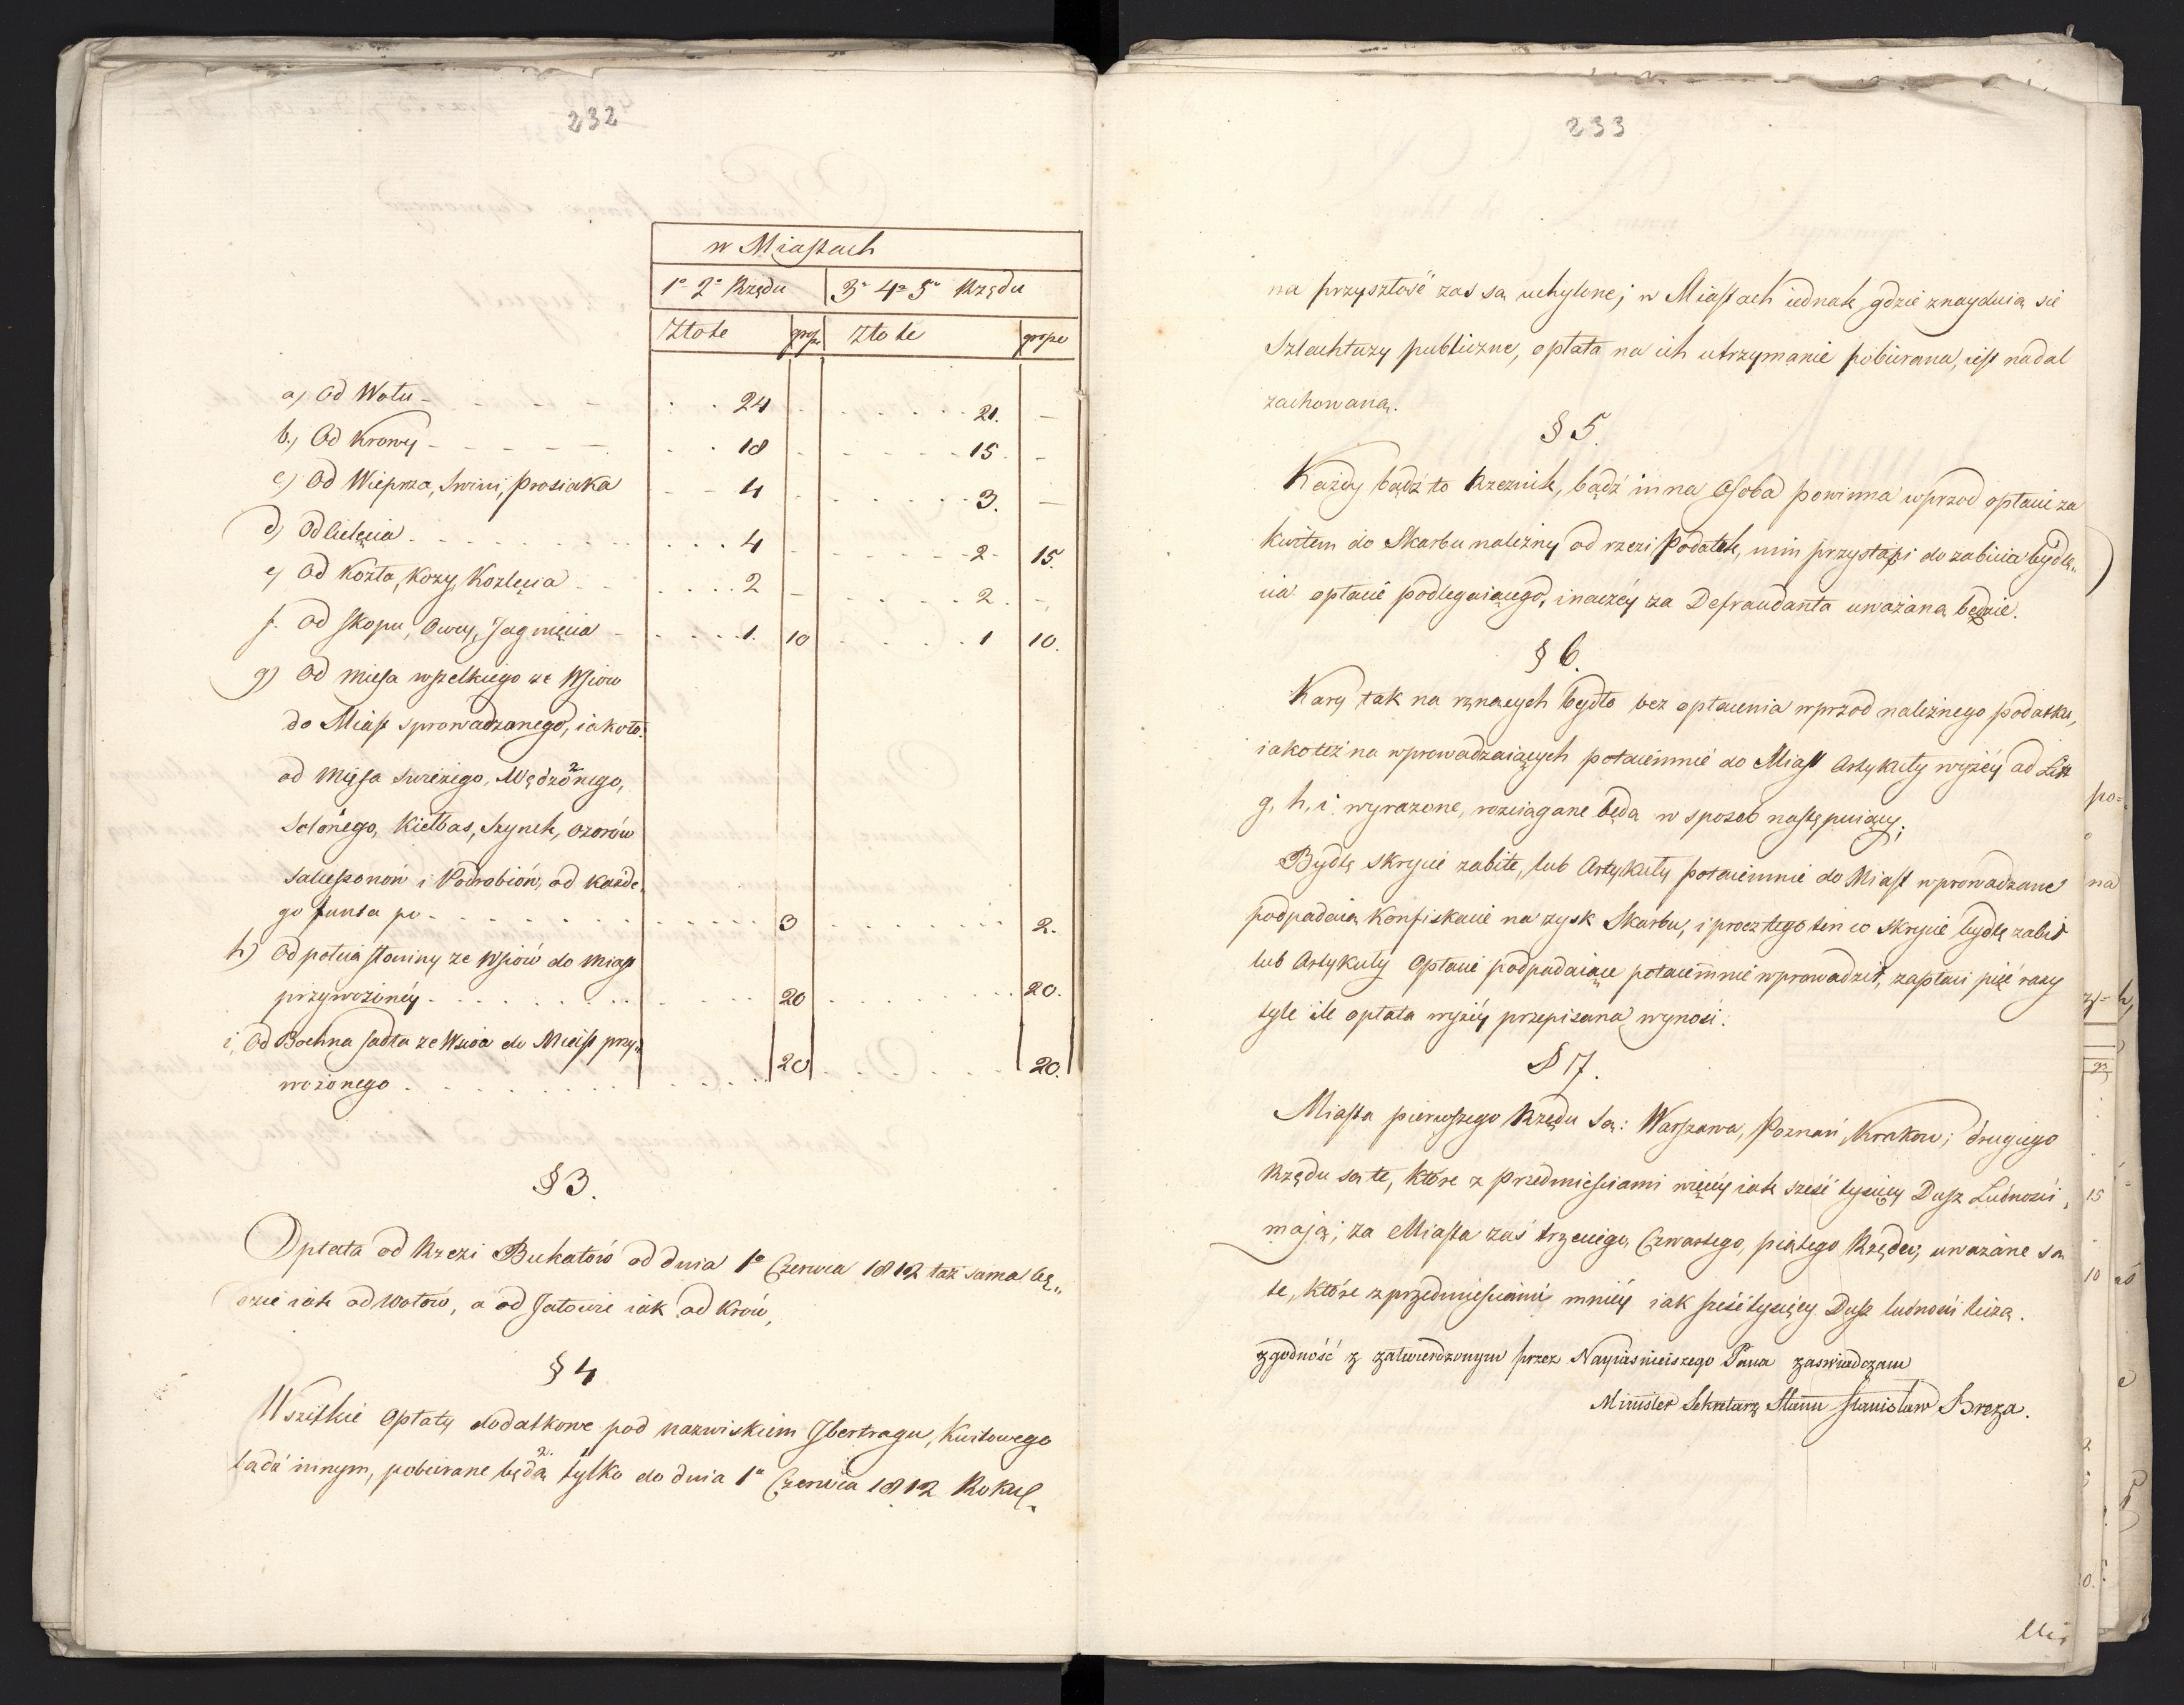 232
w Miastach
1o 2o Rzędu 3o 4o 5o Rzędu
Złote grosze Złote grosze
a) Od Wołu - - - - . . 24 - . . . . . 21. -
b.) Od Krowy - - - - - . . 18 - . . . . . 15. -
c) Od Wieprza, Swini, Prosiaka - - 4 - . . . . . 3. -
d) Od Cielęcia . . . . . . . . . 4 - . . . . . 2. 15.
e) Od Kozła, Kozy, Kozlęcia - - . . . . 2 - . . . . . 2. -
f. Od Skopu, Owcy, Jagnięcia - . . . . 1. 10 . . . . . 1 10.
g) Od mięsa wszelkiego ze Wsiow
do Miast sprowadzanego, iakoto:
od Mięsa swieżego, Wędzonego,
Solonego, Kiełbas, Szynek, Ozorów
Salcessonów i Podrobiów, od każde„
go funta po - . . . . . . . . . 3 . . . . . . 2.
h) Od połcia słoniny ze Wsiów do Miast
przywozinéy - . . . . . . . . . 20 . . . . . . 20.
i, Od Bochna sadła ze Wsiów do Miast przy„
wożonego . . . . . . . . . 20 . . . . . . 20.
§ 3.
Opłata od Rzezi Bukatów od dnia 1o Czerwca 1812 taż sama bę„
dzie iak od Wołów, a od Jałowic iak od Krów,
§ 4
Wszistkie Opłaty dodatkowe pod nazwiskiem Ibertragu, Kwitowego
bądź innym, pobierane będą tylko do dnia 1o Czerwca 1812 Roku
233
na przyszłość zas są uchylone; w Miastach iednak gdzie znayduią się
Szlachtuzy publiczne, opłata na ich utrzymanie pobierana, iest nadal
zachowaną.
§ 5.
Każdy bądź to Rzeznik, bądź inna Osoba powinna wprzod opłacić za
kwitem do Skarbu należny od rzezi Podatek, nim przystąpi do zabicia bydlę„
cia opłacie podlegaiącego, inaczéy za Defraudanta uważana będzie.
§ 6.
Kary tak na rznących bydło bez opłacenia wprzod należnego podatku,
iakoteż na wprowadzaiących potaiemnie do Miast Artykuły wyżéy ad Litt
g, h, i wyrażone, rozciągane będą w sposob następuiący;
Bydlę skrycie zabite, lub Artykuły potaiemnie do Miast wprowadzane
podpadaią Konfiskacie na zysk Skarbu, i procz tego ten co skrycie bydlę zabił
lub Artykuły Opłacie podpadaiące potaiemnie wprowadził, zapłaci pięć razy
tyle ile opłata wyżéy przepisana wynosi.
§ 7.
Miasta pierwszego Rzędu są: Warszawa, Poznań, Krakow; drugiego
Rzędu są te, które z przedmieściami więcéy iak sześć tysięcy Dusz Ludności
mają; za Miasta zaś trzeciego, Czwartego, piątego Rzędu, uważane są
te, które z przedmieściami mniéy iak sześć tysięcy Dusz ludności liczą.
zgodność z zatwierdzonym przez Nayiasnieiszego Pana zaswiadczam
Minister Sekretarz Stanu Stanisław Breza.
po=
na
15
10